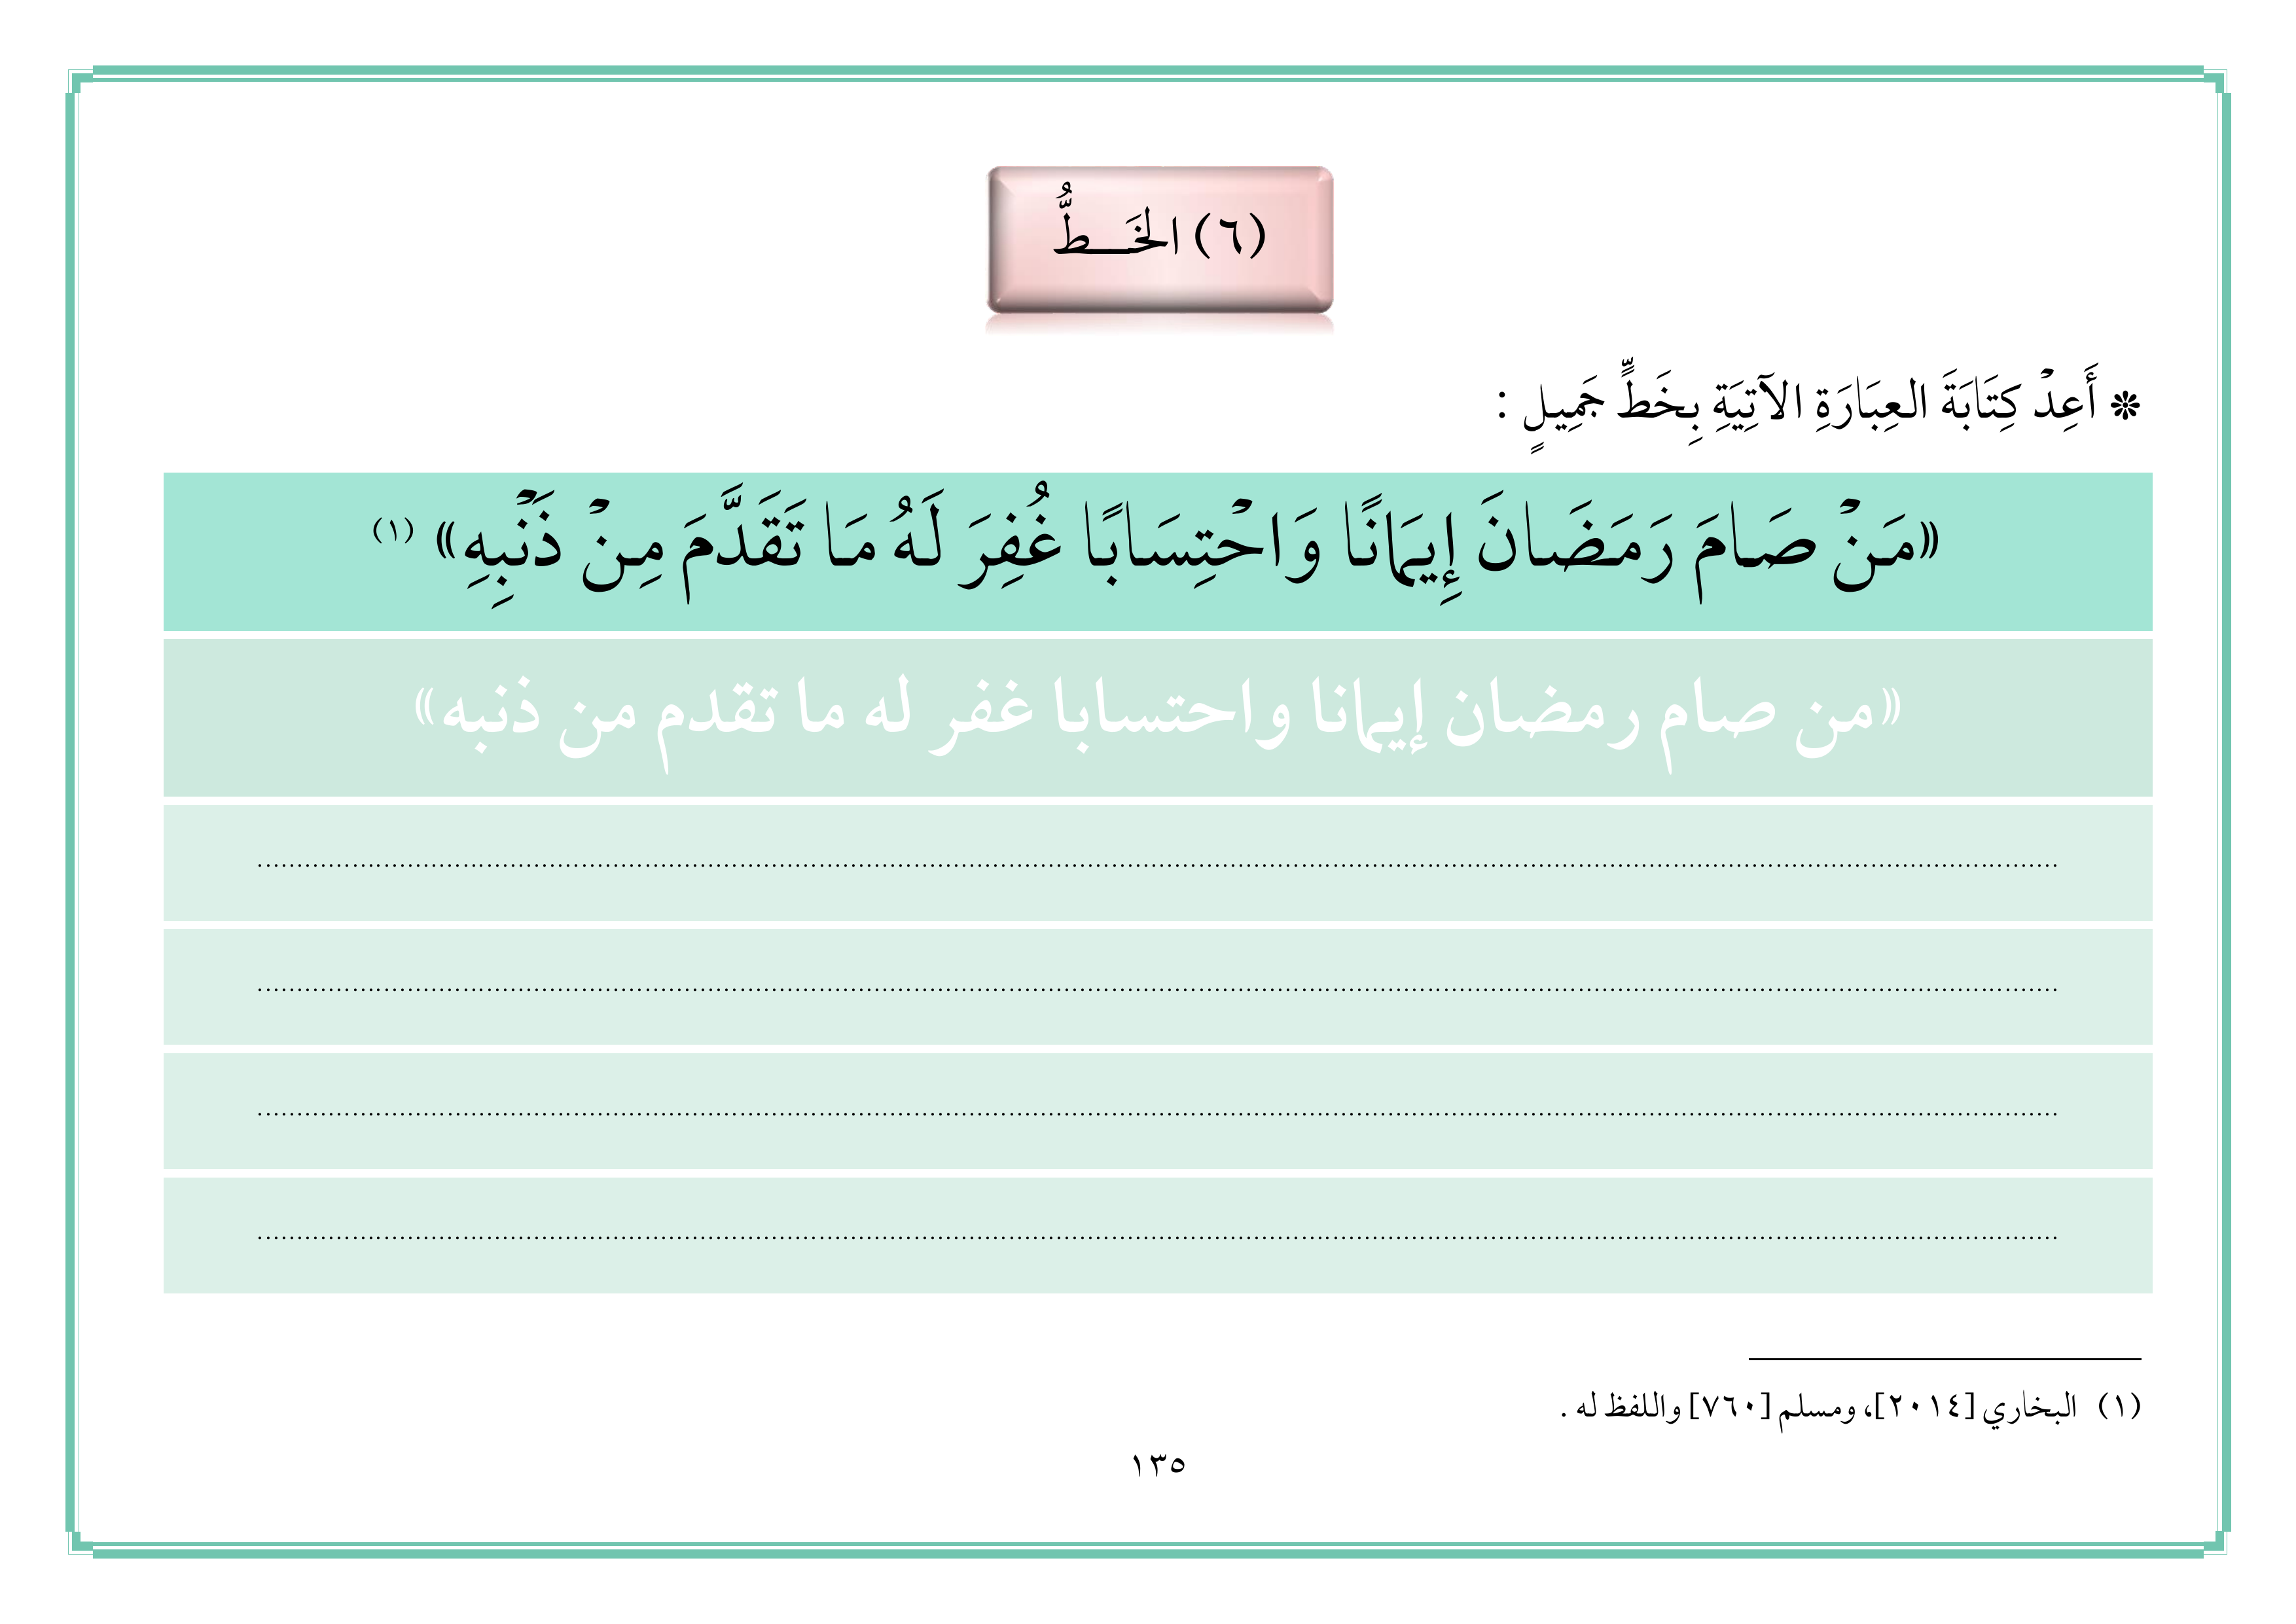 (٦) الخَـــطُّ
* أَعِدْ كِتَابَةَ العِبَارَةِ الآتِيَةِ بِخَطٍّ جَمِيلٍ :
«مَنْ صَامَ رَمَضَانَ إِيمَانًا وَاحْتِسَابًا غُفِرَ لَهُ مَا تَقَدَّمَ مِنْ ذَنْبِهِ» (١)
«من صام رمضان إيمانا واحتسابا غفر له ما تقدم من ذنبه»
(١) البخاري [٢٠١٤]، ومسلم [٧٦٠] واللفظ له .
١٣٥